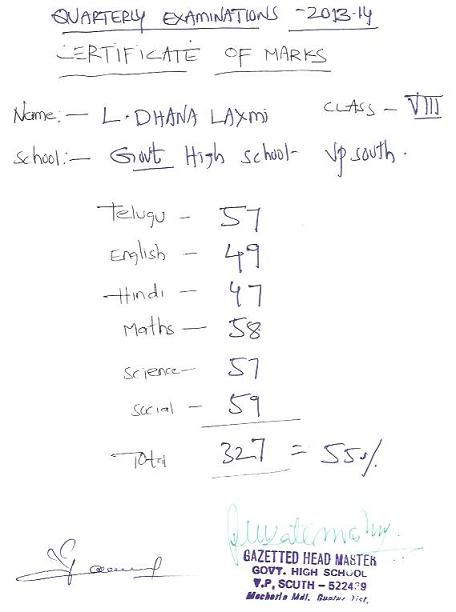 QUARTERLY EXAMINATIONS - 2013-14
CERTIFICATE OF MARKS
Name:- L. DHANA LAXMI CLASS - VIII
School:- Govt High school- Vp south.
Telugu - 57
English - 49
Hindi - 47
Maths - 58
Science - 57
Social - 59
Total 327 = 55%
GAZETTED HEAD MASTER
GOVT. HIGH SCHOOL
V.P. SOUTH - 522439
Macherla Mdl. Guntur Dist.